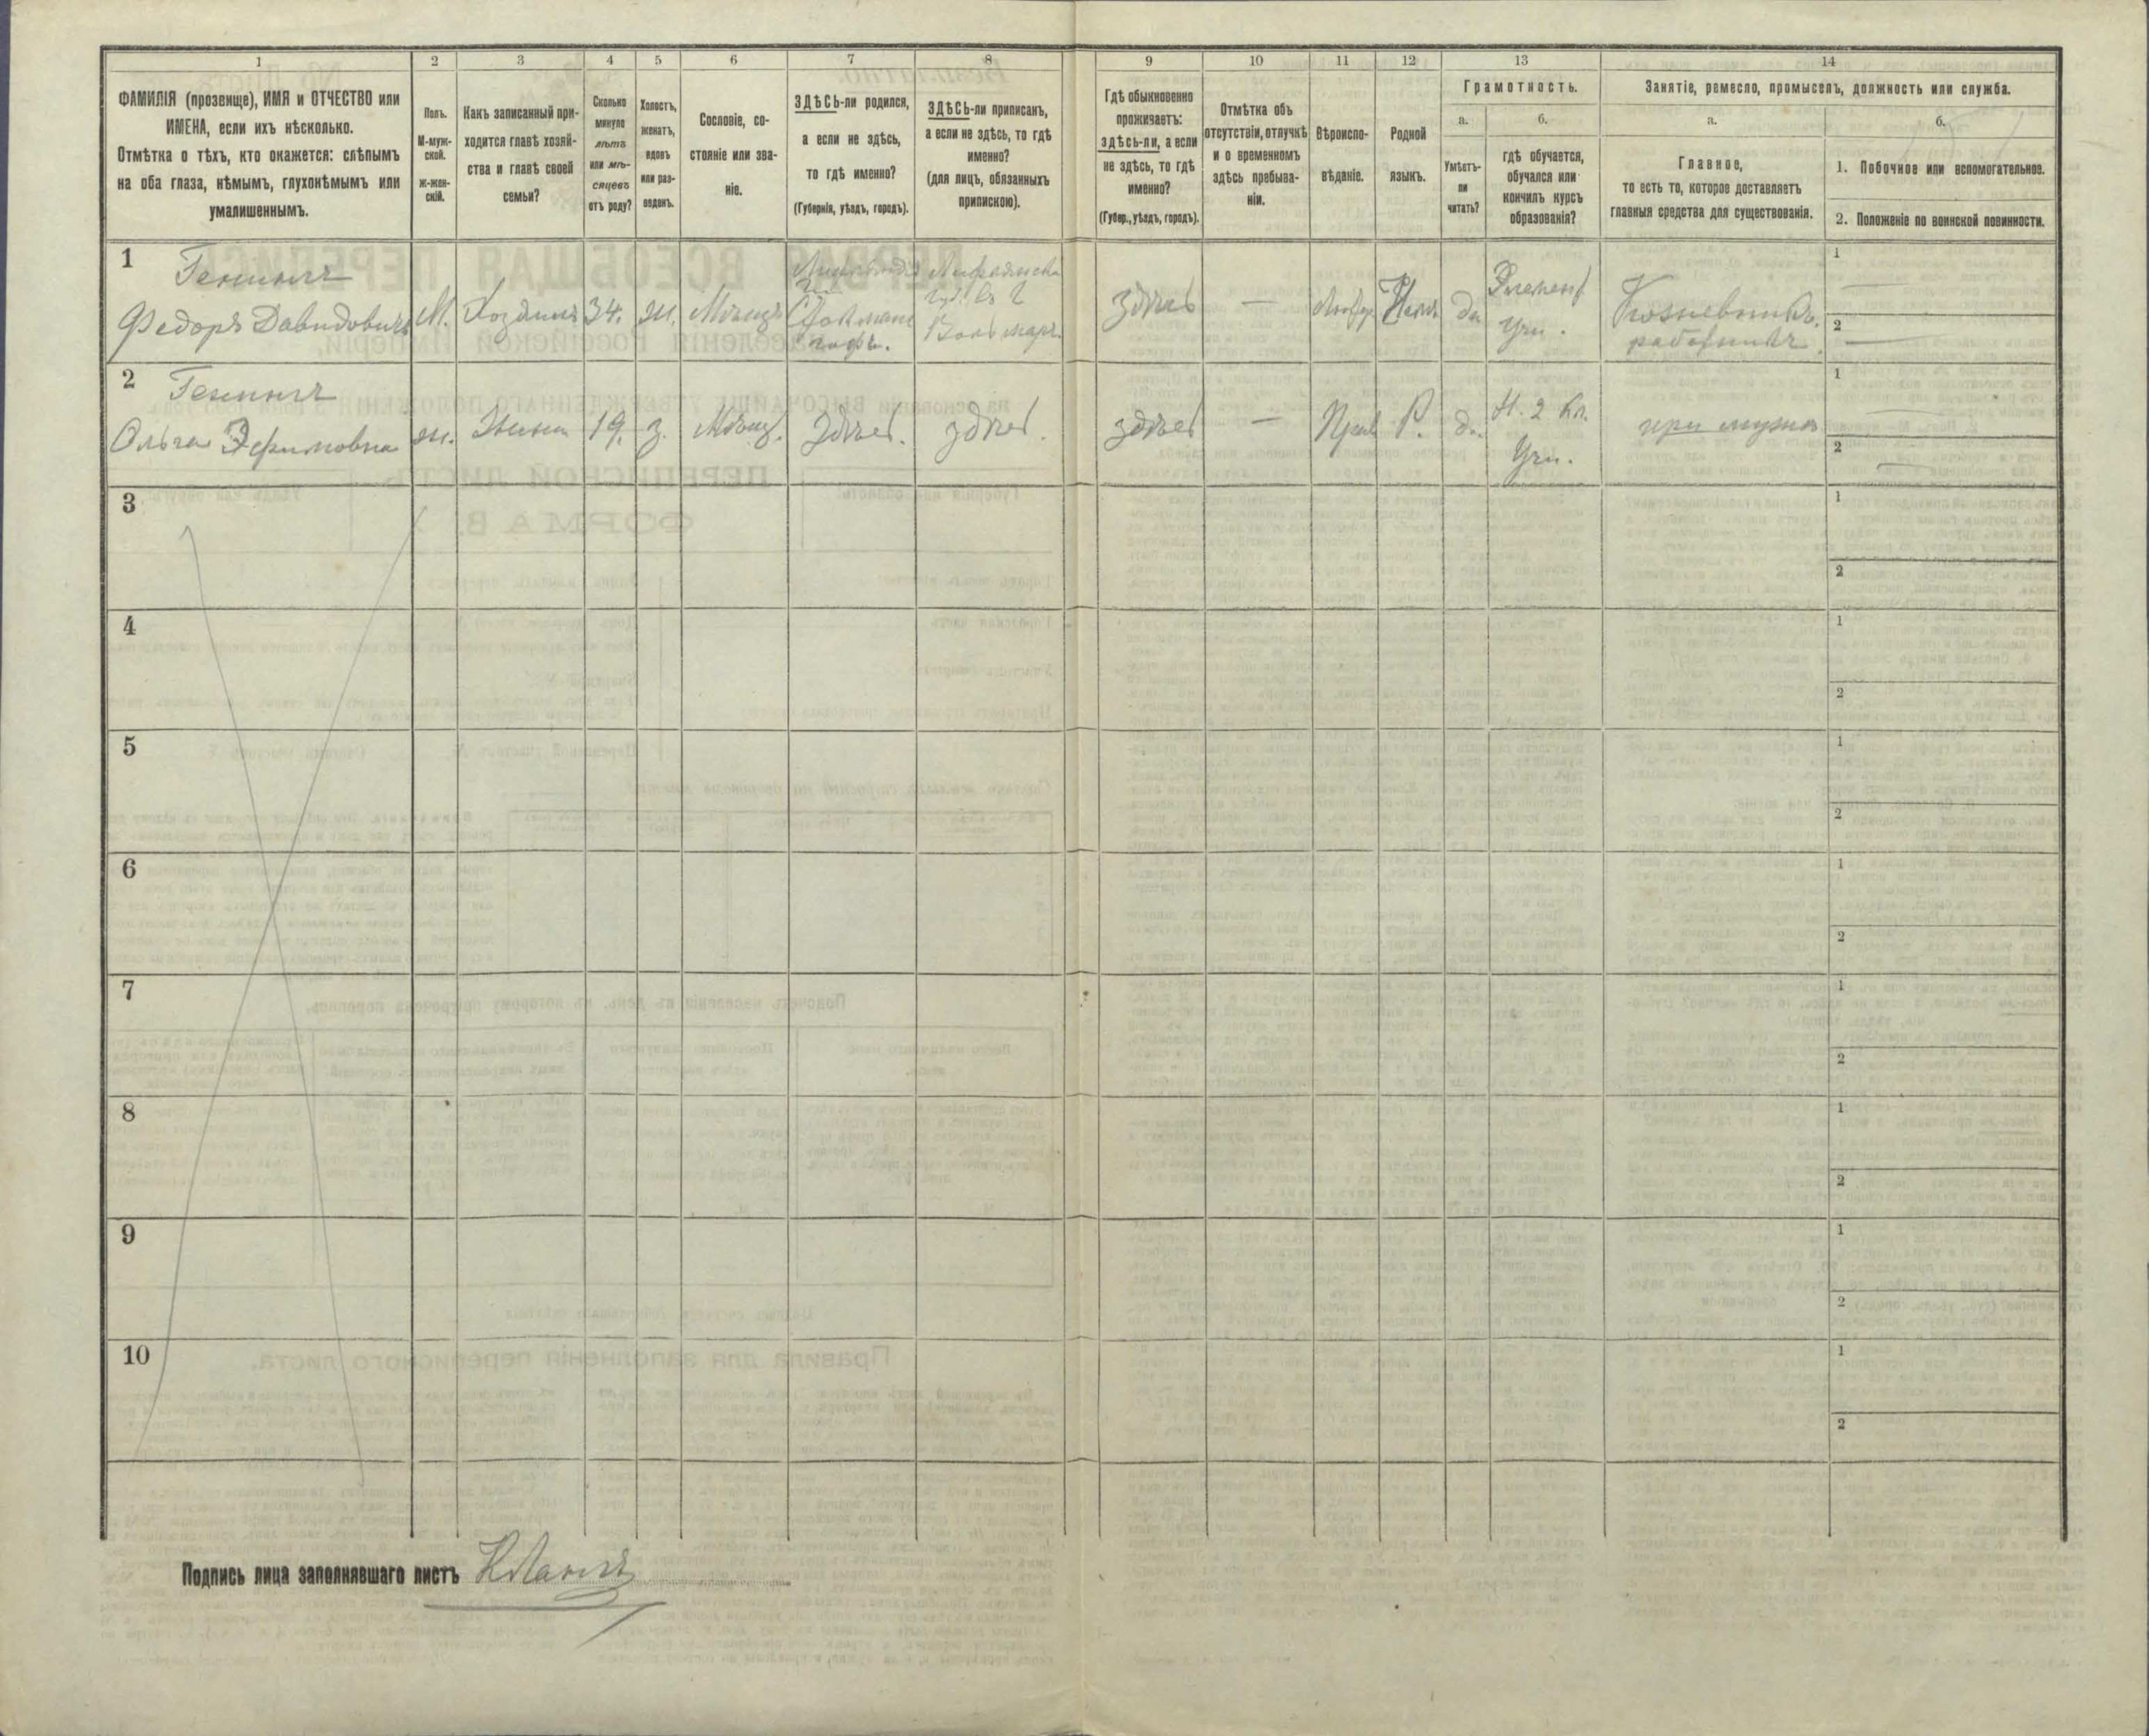 1
ФАМИЛІЯ (прозвище), ИМЯ и ОТЧЕСТВО или
ИМЕНА, если ихъ нѣсколько.
Отмѣтка о тѣхъ, кто окажется: слѣпымъ
на оба глаза, нѣмымъ, глухонѣмымъ или
умалишеннымъ.
2
Полъ.
М-муж-
ской.
ж-жен-
скій.
3
Какъ записанный при-
ходится главѣ хозяй-
ства и главѣ своей
семьи?
4
Сколько
минуло
лѣтъ
или мѣ-
сяцевъ
отъ роду?
5
Холостъ,
женатъ,
вдовъ
или раз-
веденъ.
6
Сословіе, со-
стояніе или зва-
ніе.
7
ЗДѢСЬ-ли родился,
а если не здѣсь,
то гдѣ именно?
(Губернія, уѣздъ, городъ).
8
ЗДѢСЬ-ли приписанъ,
а если не здѣсь, то гдѣ
именно?
(для лицъ, обязанныхъ
припискою).
9
Гдѣ обыкновенно
проживаетъ:
здѣсь-ли, а если
не здѣсь, то гдѣ
именно?
(Губер., уѣздъ, городъ).
10
Отмѣтка объ
отсутствіи, отлучкѣ
и о временномъ
здѣсь пребыва-
ніи.
11
Вѣроиспо-
вѣданіе.
12
Родной
языкъ.
13
Грамотность.
а.
Умѣетъ-
ли
читать?
б.
гдѣ обучается,
обучался или
кончилъ курсъ
образованія?
14
Занятіе, ремесло, промыселъ, должность или служба.
а.
Главное,
то есть то, которое доставляетъ
главныя средства для существованія.
б.
1. Побочное или вспомогательное.
2. Положеніе по воинской повинности.
1
Федоръ Давидовичъ
М.
Хозяинъ
34.
ж.
Мѣщ.
Лифляндск
губ.
Вольмаръ
здѣсь
—
Лютер.
Нѣм.
да
Элемент
Уч.
работникъ.
1 —
2 —
2
Ольга Эфимовна
ж.
Жена
19.
з.
Мѣщ.
Здѣсь.
здѣсь.
здѣсь
—
Прав
Р.
да.
Н. 2 Кл.
Уч.
при мужѣ
1 —
2 —
3
1
2
4
1
2
5
1
2
6
1
2
7
1
2
8
1
2
9
1
2
10
1
2
Подпись лица заполнявшаго листъ